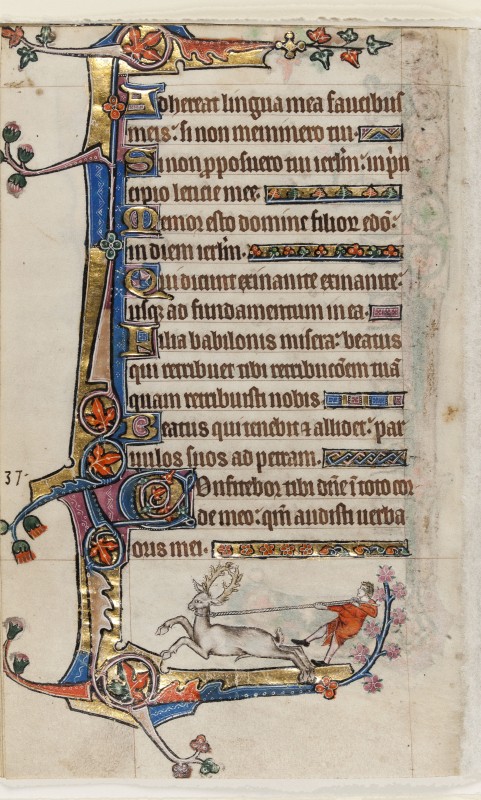 Adhereat lingua mea faucibus
meis: si non meminero tui.
Si non pposuero tui ierlm: in pn
cipio leticie mee.
Memor esto domine filior edom:
in diem ierlm.
Qui dicunt exinanite exinanite:
usq; ad fundamentum in ea.
Filia babilonis misera: beatus
qui retribuet tibi retribucoem tua
quam retribuisti nobis
Beatus qui tenebit ⁊ allidet: par
uulos suos ad petram.
37
Confitebor tibi dne i toto cor
de meo: qm audisti uerba
oris mei.